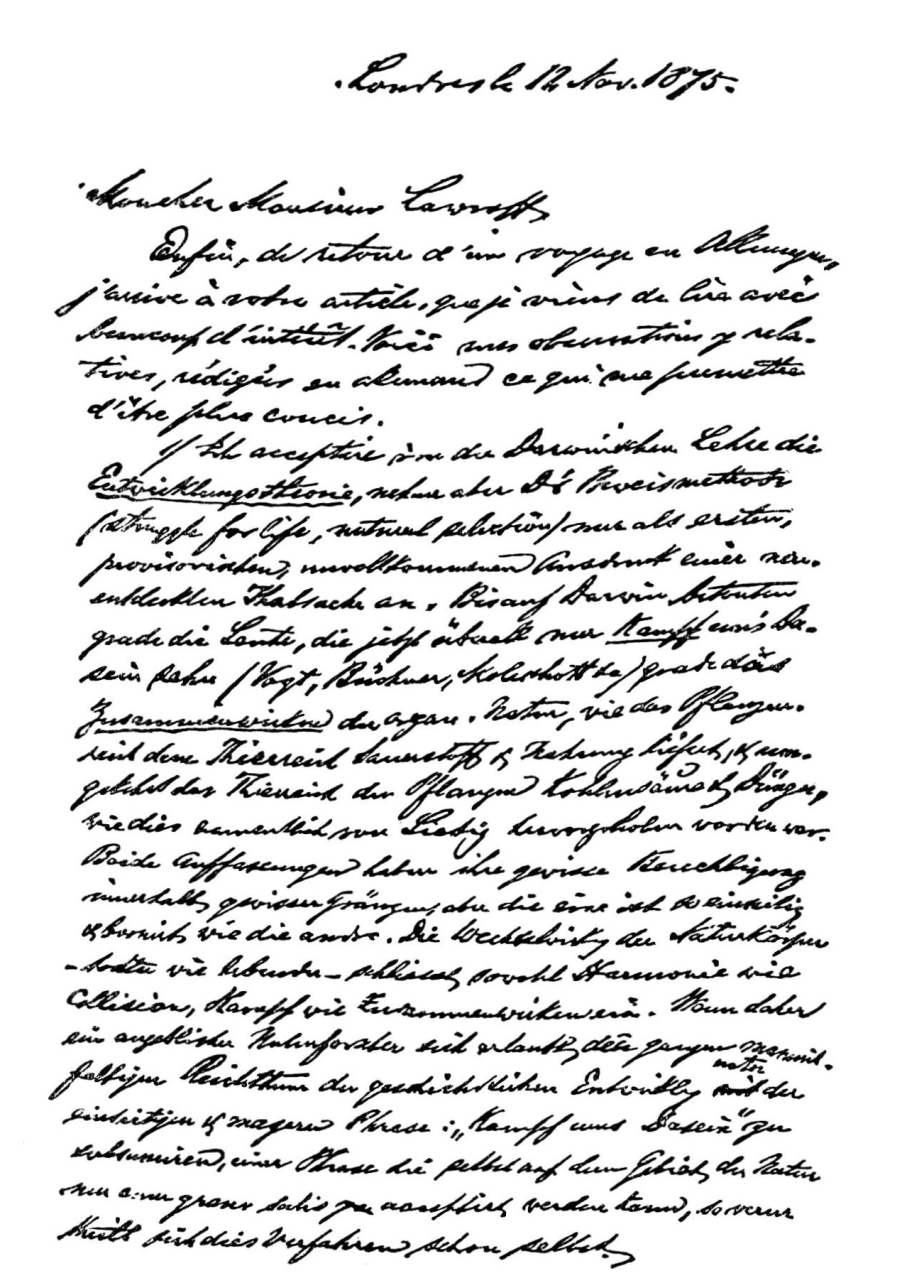 Londres le 12 Nov. 1875.
Mon cher Monsieur Lawroff,
Enfin, de retour d'un voyage en Allemagne,
j'arrive à votre article, que je viens de lire avec
beaucoup d'intérêt. Voici mes observations y rela-
tives, rédigées en allemand ce qui me permettra
d'être plus concis.
1/ Ich acceptire von der Darwinischen Lehre die
Entwicklungstheorie, nehme aber D's Beweismethode
(struggle for life, natural selection) nur als ersten,
provisorischen, unvollkommenen Ausdruck einer neu-
entdeckten Thatsache an. Bis auf Darwin betonten
grade die Leute, die jetzt überall nur Kampf ums Da-
sein sehn (Vogt, Büchner, Moleschott &c) grade das
Zusammenwirken der organ. Natur, wie das Pflanzen-
reich dem Thierreich Sauerstoff & Nahrung liefert, & um-
gekehrt das Thierreich den Pflanzen Kohlensäure & Dünger,
wie dies namentlich von Liebig hervorgehoben worden war.
Beide Auffassungen haben ihre gewisse Berechtigung
innerhalb gewisser Gränzen, aber die eine ist so einseitig
& bornirt wie die andre. Die Wechselwirkg der Naturkörper
– todter wie lebender – schliesst sowohl Harmonie wie
Collision, Kampf wie Zusammenwirken ein. Wenn daher
ein angeblicher Naturforscher sich erlaubt, den ganzen mannich-
faltigen Reichthum der geschichtlichen Entwicklg unter der
einseitigen & magern Phrase: „Kampf ums Dasein" zu
subsumiren, einer Phrase die selbst auf dem Gebiet der Natur
nur cum grano salis acceptirt werden kann, so verur-
theilt sich dies Verfahren schon selbst.